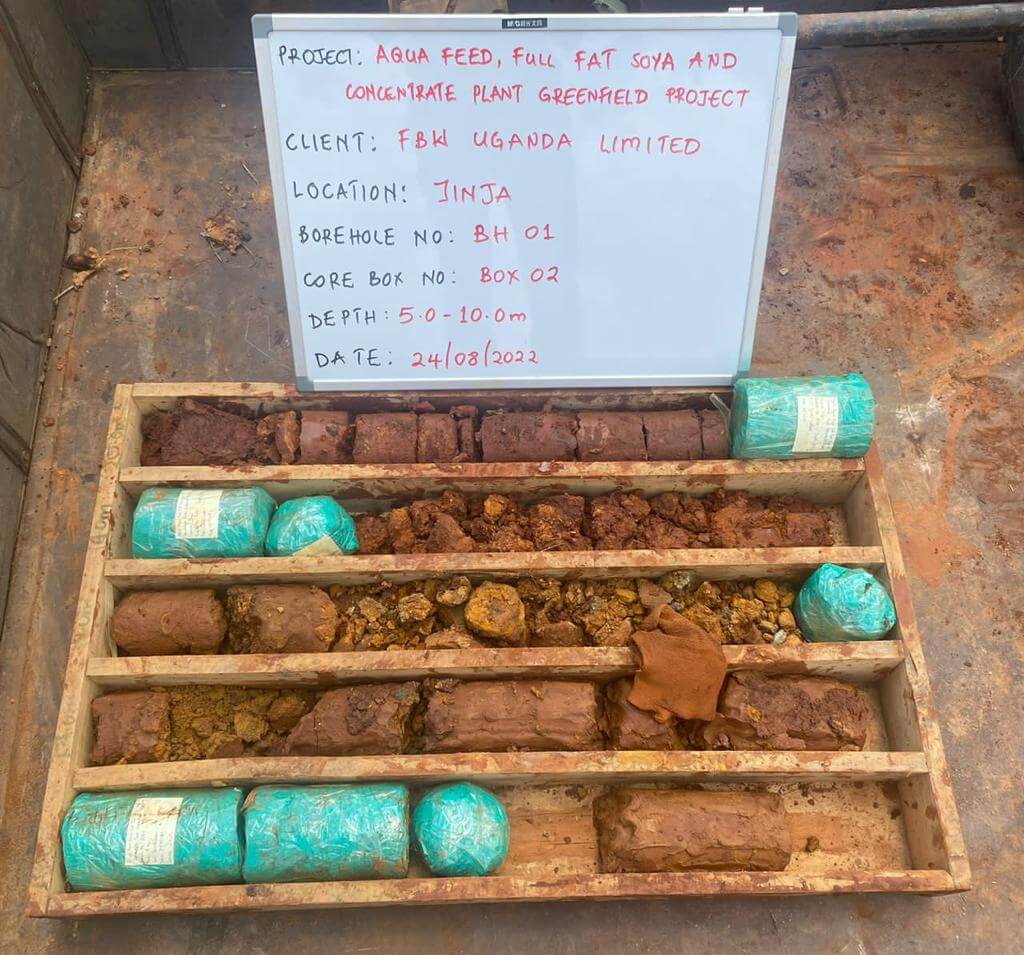 PROJECT: AQUA FEED, FULL FAT SOYA AND
CONCENTRATE PLANT GREENFIELD PROJECT
CLIENT: FBW UGANDA LIMITED
LOCATION: JINJA
BOREHOLE NO: BH 01
CORE BOX NO: BOX 02
DEPTH: 5.0-10.0m
DATE: 24/08/2022